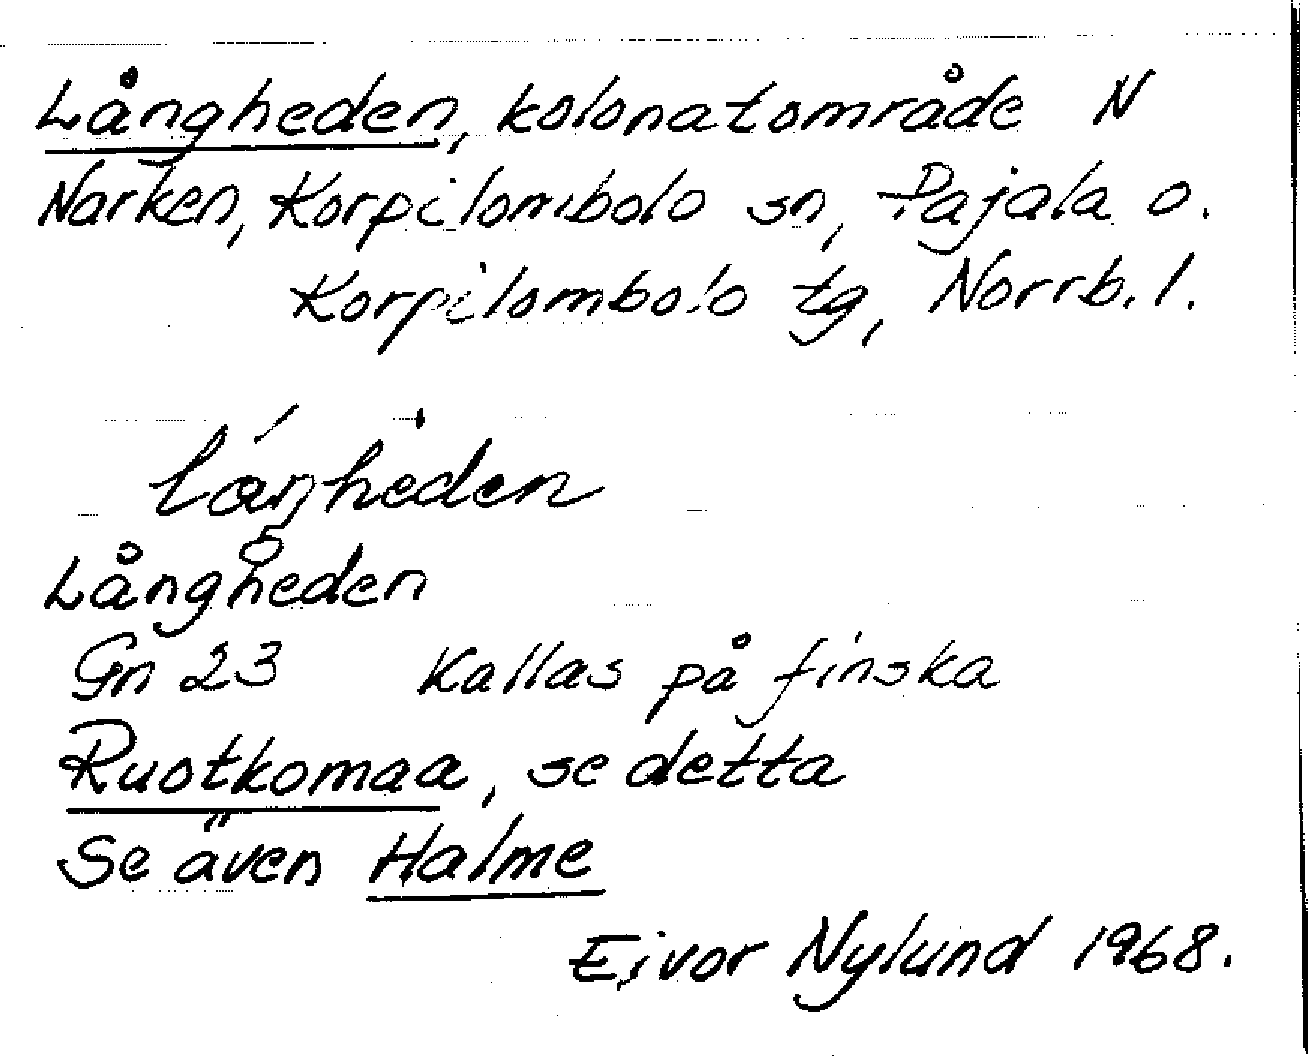 Långheden, kolonatområde N
Narken, Korpilombolo sn, Pajala o.
Korpilombolo tg, Norrb. l.
Långheden
Gn 23 Kallas på finska
Ruotkomaa, se detta
Se även Halme
Eivor Nylund 1968.